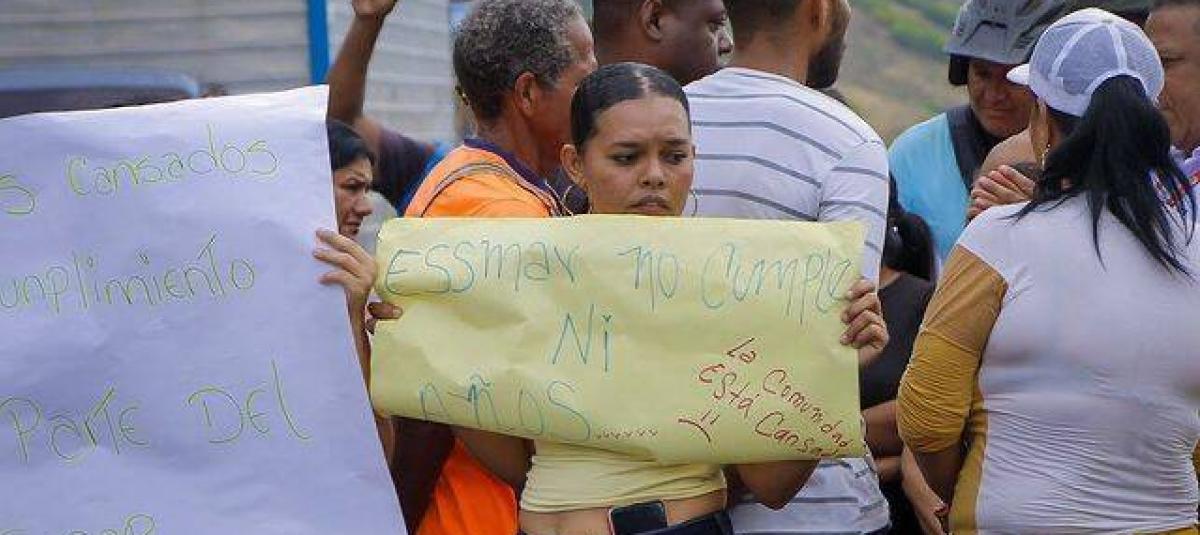 Cansados
umplimiento
Parte Del
ESSmar no Cumple
Ni
Años......
La
Comunidad
Está Cansa